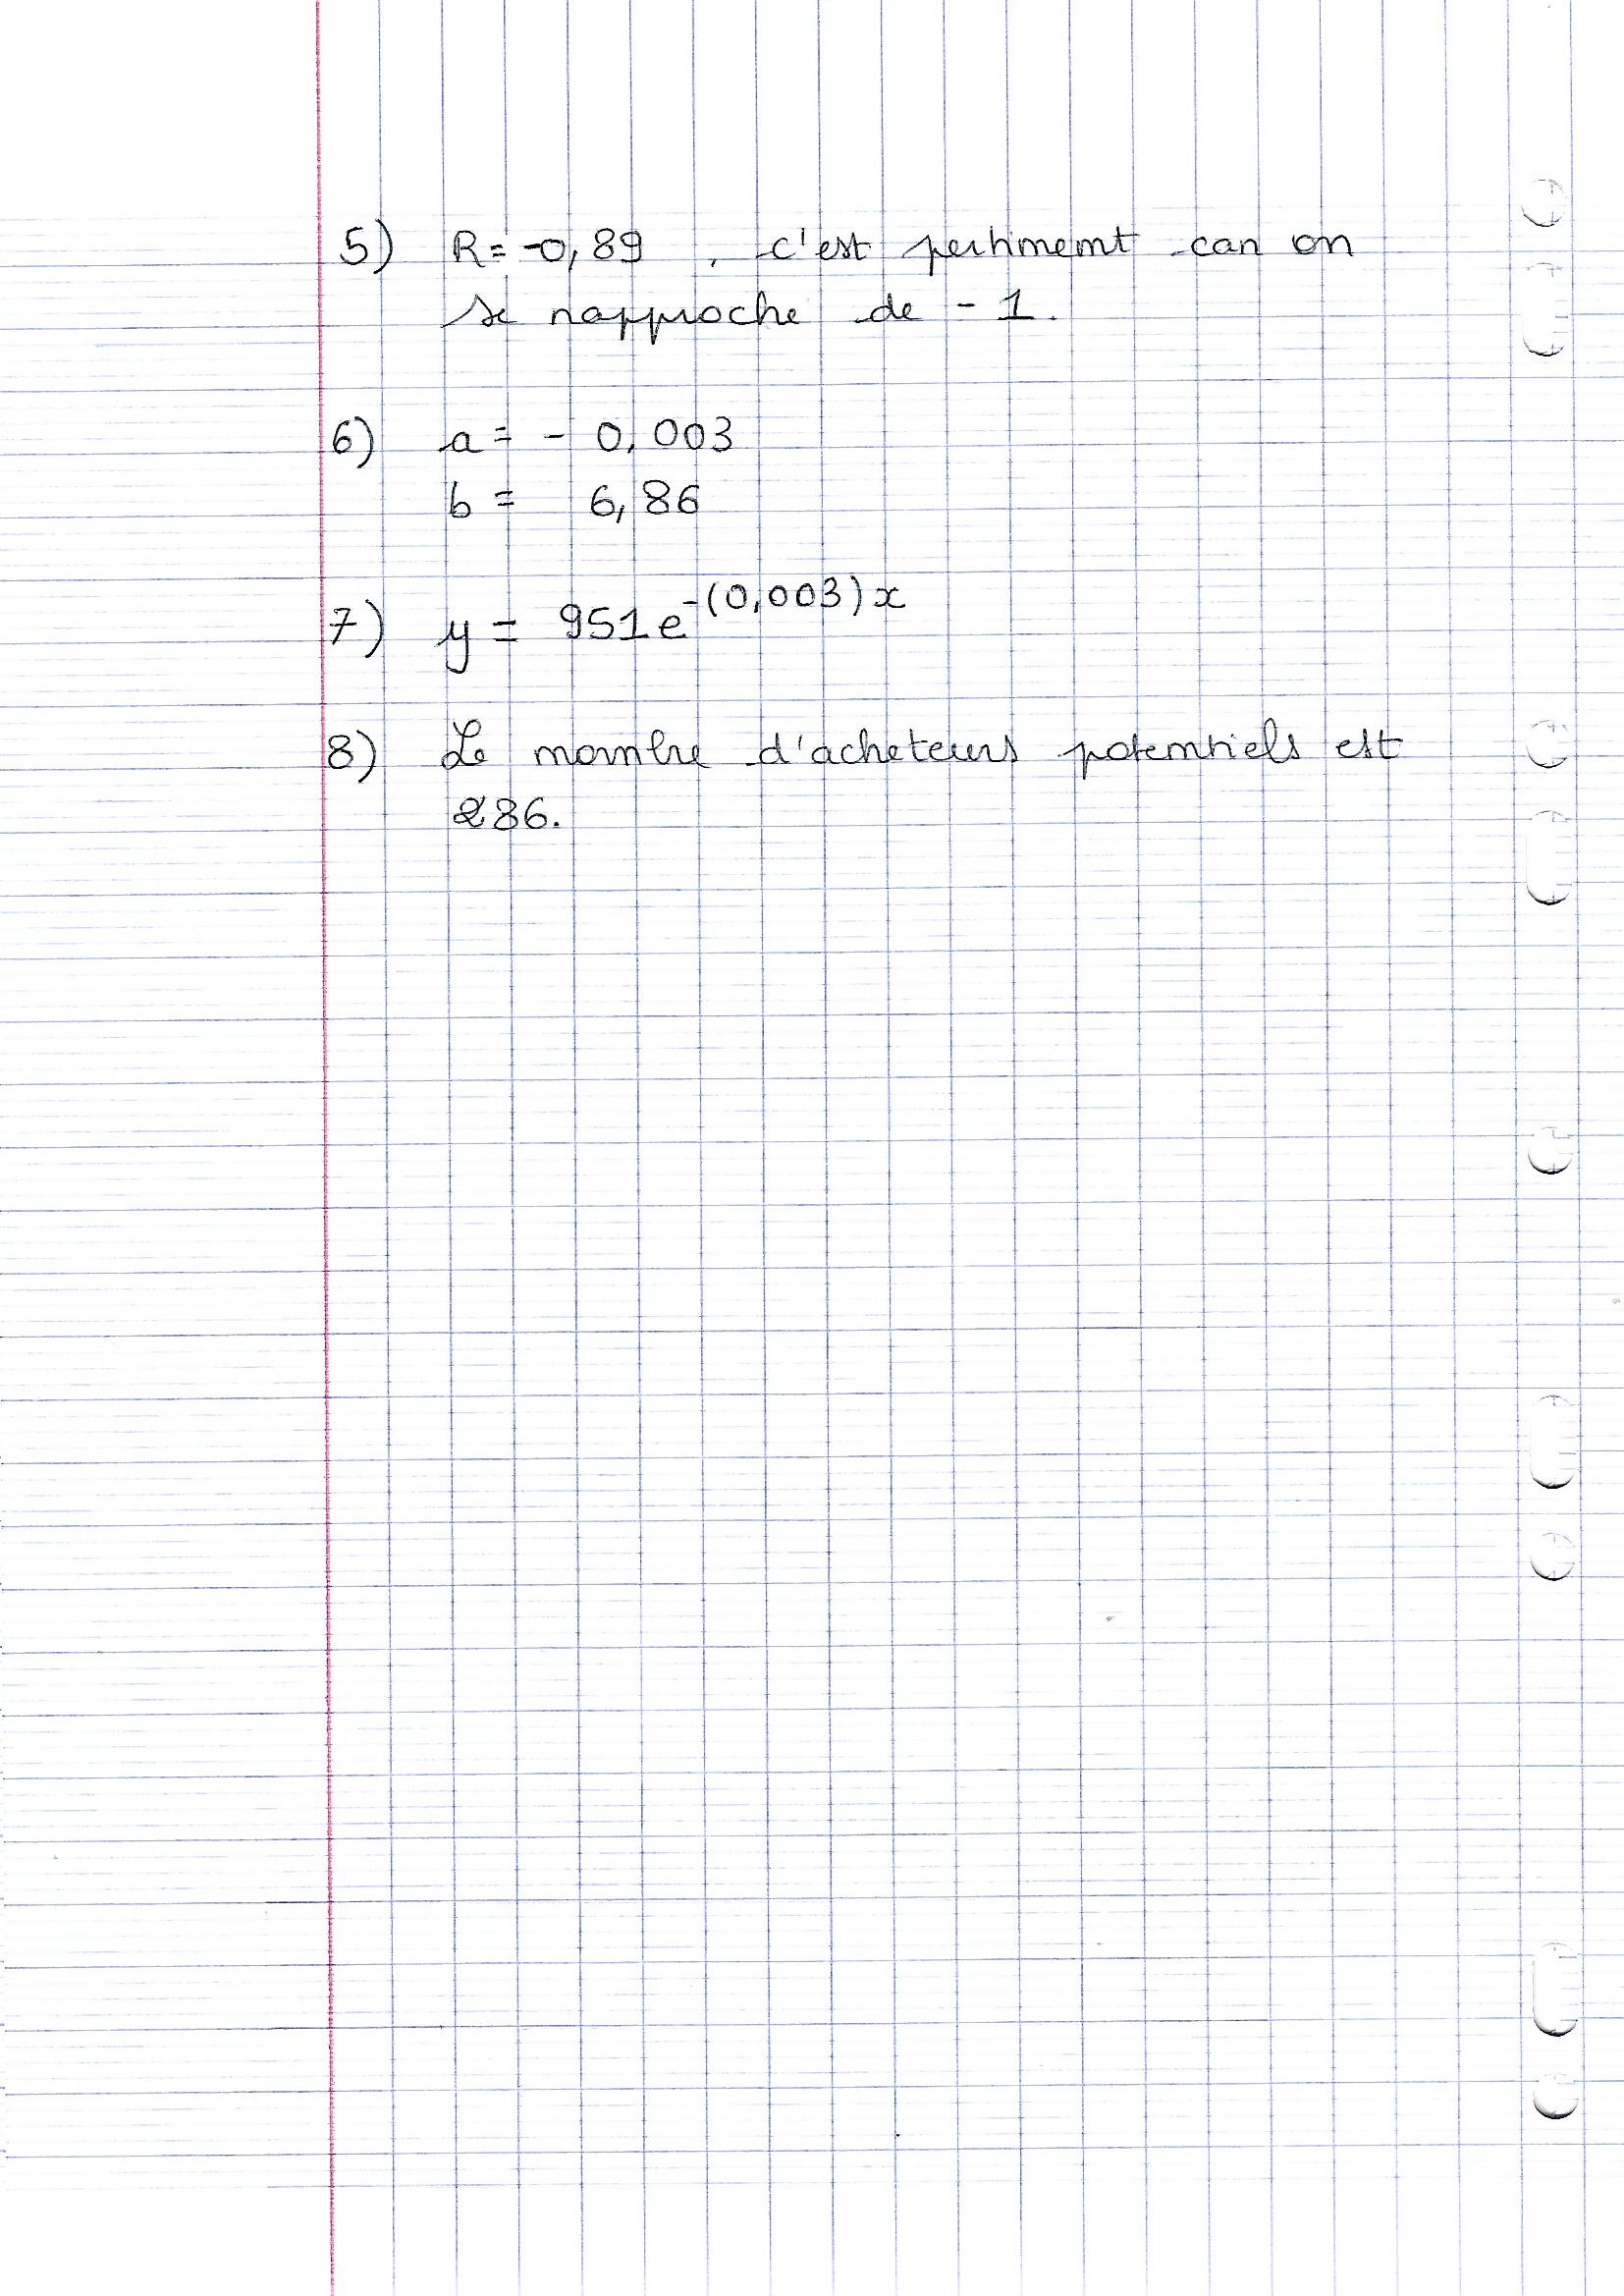 5) R = -0,89 , c'est pertinent car on
se rapproche de - 1.
6) a = - 0,003
b = 6,86
7) y = 951e^-(0,003)x
8) Le nombre d'acheteurs potentiels est
286.